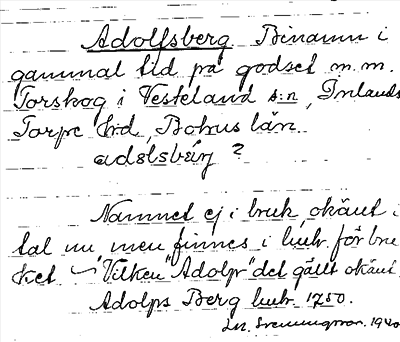 Adolfsberg Binamn i
gammal tid på godset m.m.
Torskog i Vesteland s:n, Inlands
Torpe hrd, Bohus län.
adəlsbærj ?
Namnet ej i bruk, okänt i
tal nu, men finnes i
Vilken "Adolf" det gällt okänt
Adolps Berg 1750.
1940